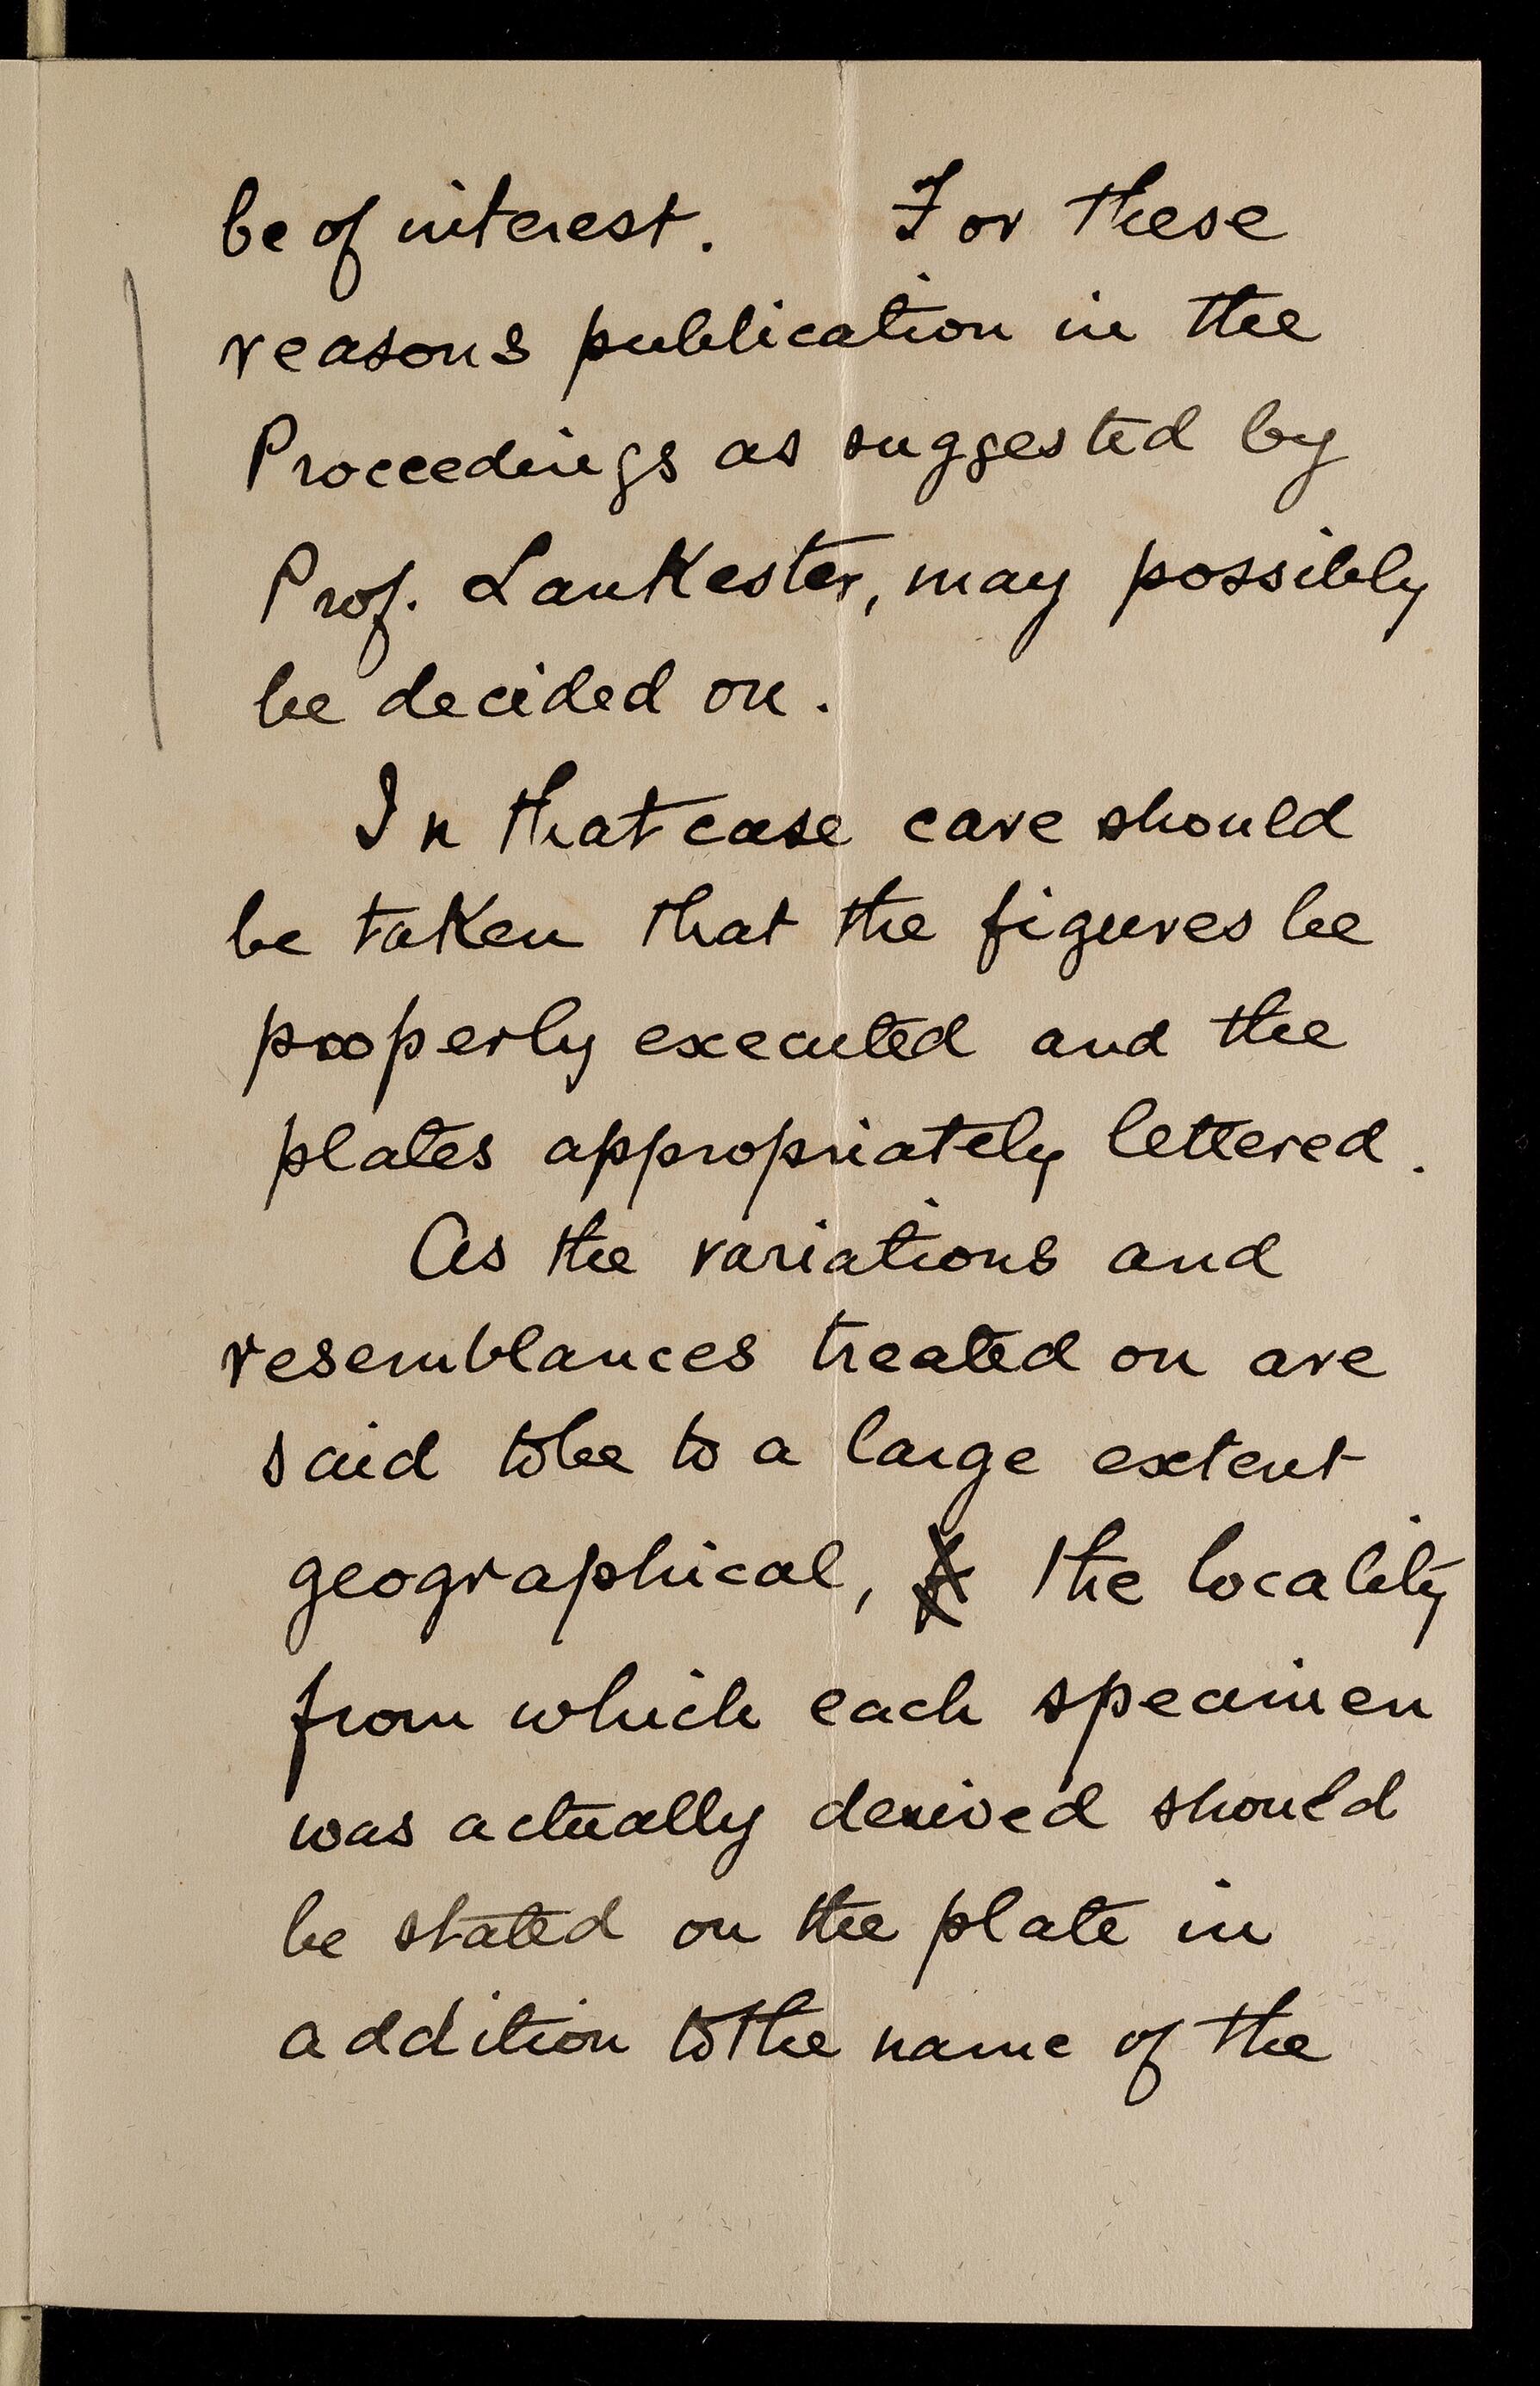 be of interest. For these
reasons publication in the
Proceedings as suggested by
Prof. Lankester, may possibly
be decided on.
In that case care should
be taken that the figures be
properly executed and the
plates appropriately lettered.
As the variations and
resemblances treated on are
said to be to a large extent
geographical, the locality
from which each specimen
was actually derived should
be stated on the plate in
addition to the name of the